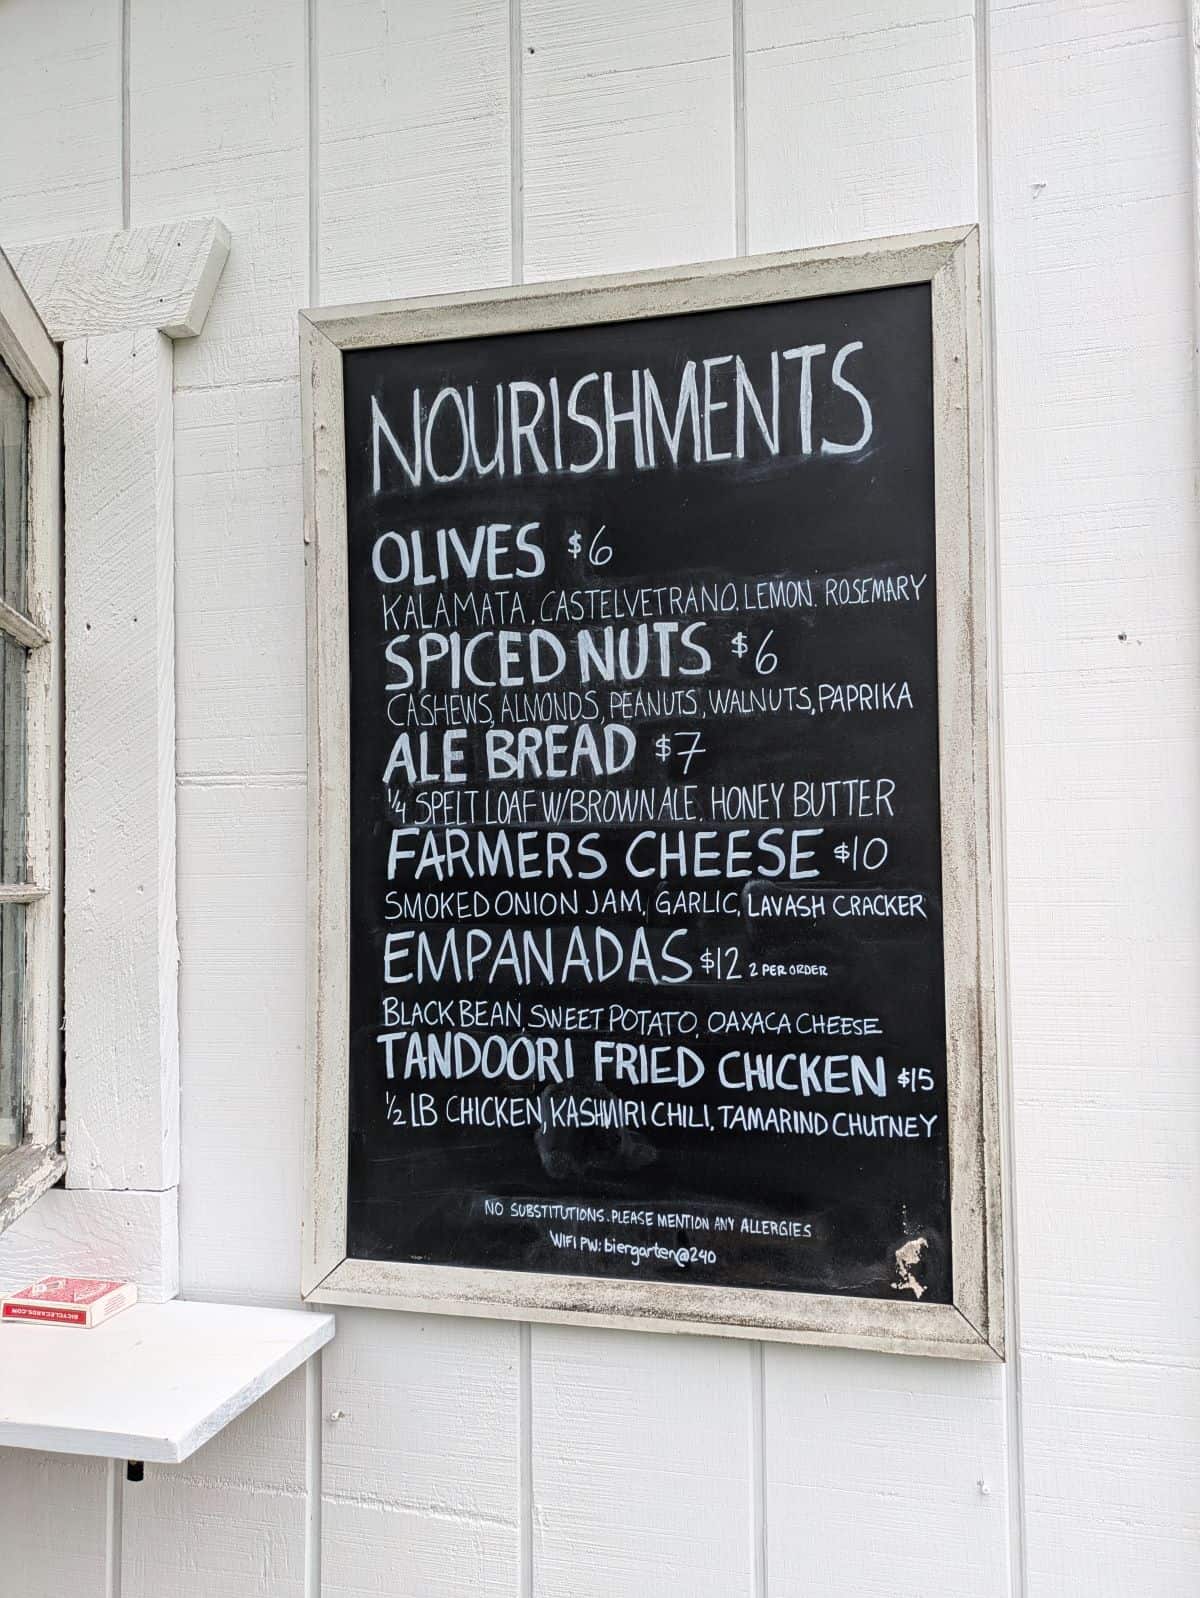 NOURISHMENTS
OLIVES $6
KALAMATA, CASTELVETRANO, LEMON, ROSEMARY
SPICED NUTS $6
CASHEWS, ALMONDS, PEANUTS, WALNUTS, PAPRIKA
ALE BREAD $7
1/4 SPELT LOAF W/BROWN ALE, HONEY BUTTER
FARMERS CHEESE $10
SMOKED ONION JAM, GARLIC, LAVASH CRACKER
EMPANADAS $12 2 PER ORDER
BLACK BEAN, SWEET POTATO, OAXACA CHEESE
TANDOORI FRIED CHICKEN $15
1/2 LB CHICKEN, KASHMIRI CHILI, TAMARIND CHUTNEY
NO SUBSTITUTIONS. PLEASE MENTION ANY ALLERGIES
WIFI PW: biergarten@240
BICYCLECARDS.COM